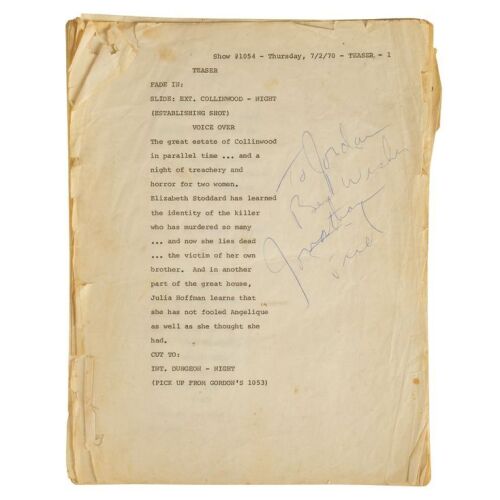 Show #1054 - Thursday, 7/2/70 - TEASER - 1
TEASER
FADE IN:
SLIDE: EXT. COLLINWOOD - NIGHT
(ESTABLISHING SHOT)
VOICE OVER
The great estate of Collinwood
in parallel time ... and a
night of treachery and
horror for two women.
Elizabeth Stoddard has learned
the identity of the killer
who has murdered so many
... and now she lies dead
... the victim of her own
brother. And in another
part of the great house,
Julia Hoffman learns that
she has not fooled Angelique
as well as she thought she
had.
CUT TO:
INT. DUNGEON - NIGHT
(PICK UP FROM GORDON'S 1053)
To Jordan
Best Wishes
Jonathan
Frid